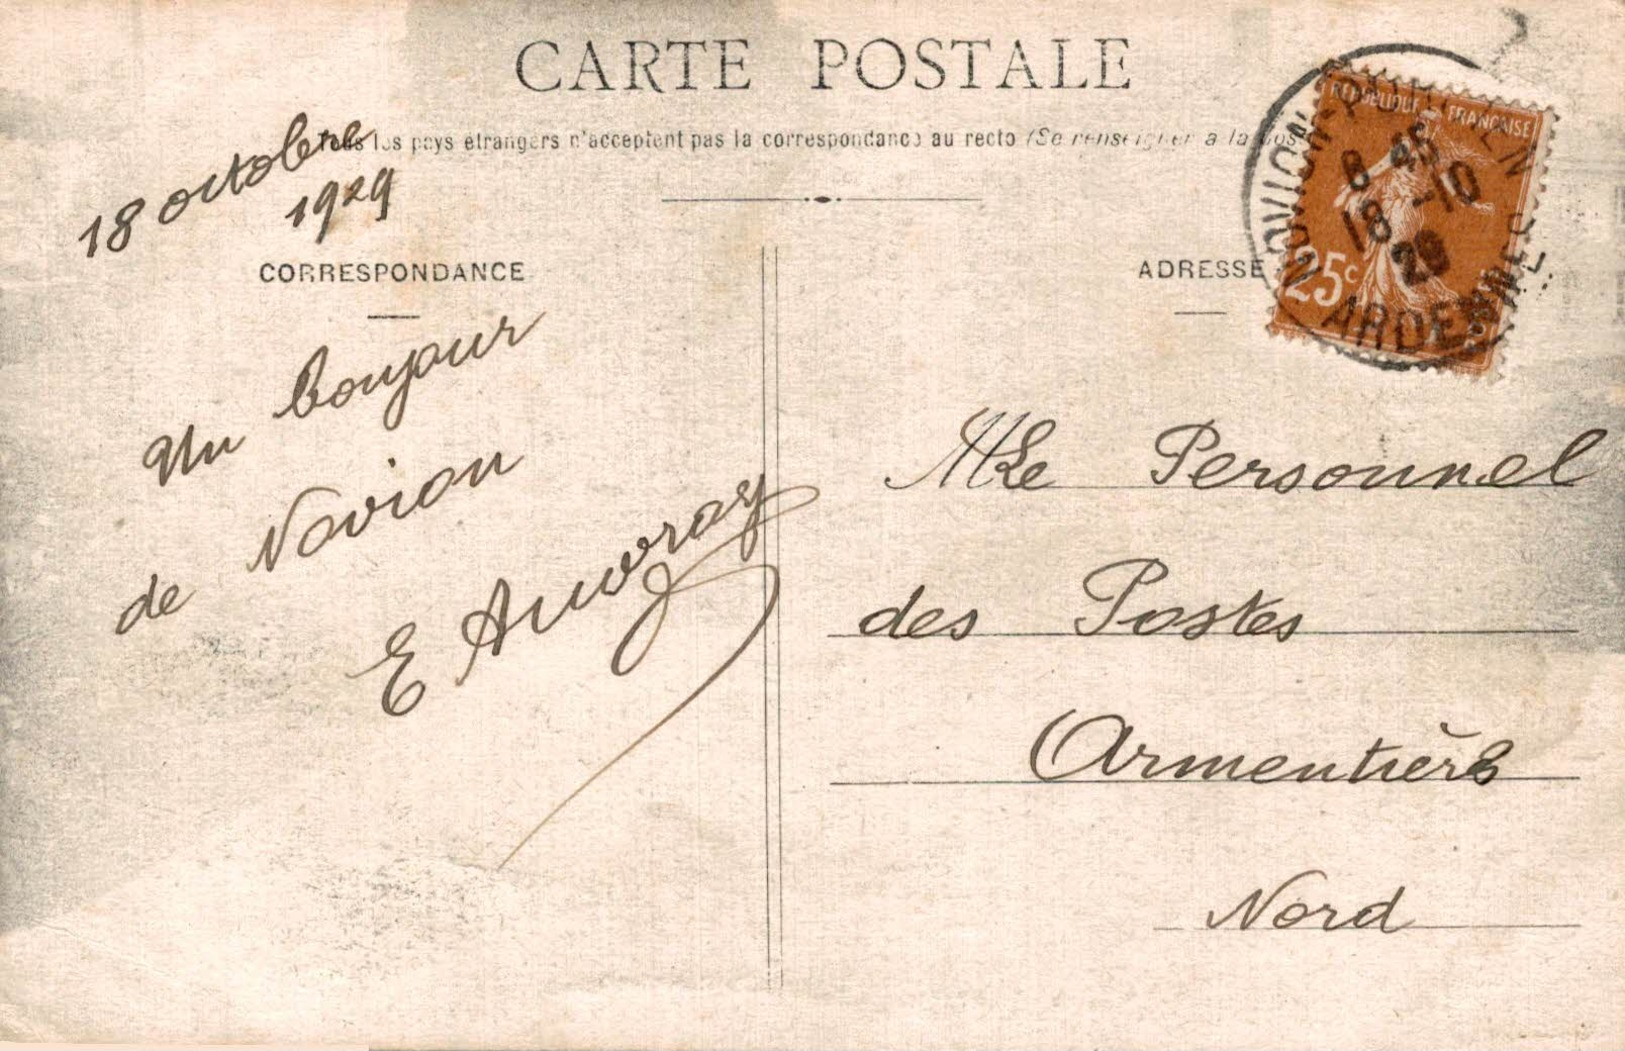 CARTE POSTALE
Tous les pays étrangers n'acceptent pas la correspondance au recto (Se renseigner à la
18 octobre
1929
CORRESPONDANCE
Un bonjour
de Novion
E Auvray
ADRESSE
REPUBLIQUE FRANÇAISE
25c
NOVION-PORCIEN
8 45
18 -10
29
ARDENNES
Le Personnel
des Postes
Armentières
Nord